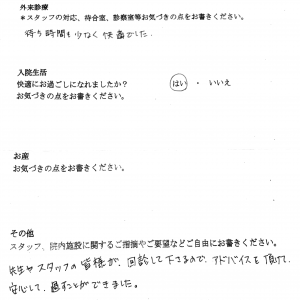 外来診療
*スタッフの対応、待合室、診察室等お気づきの点をお書きください。
待ち時間も少なく快適でした。
入院生活
快適にお過ごしになれましたか？ はい ・ いいえ
お気づきの点をお書きください。
お産
お気づきの点をお書きください。
その他
スタッフ、院内施設に関するご指摘やご要望などご自由にお書きください。
先生やスタッフの皆様が、回診して下さるので、アドバイスを頂けて、
安心して、過すことができました。